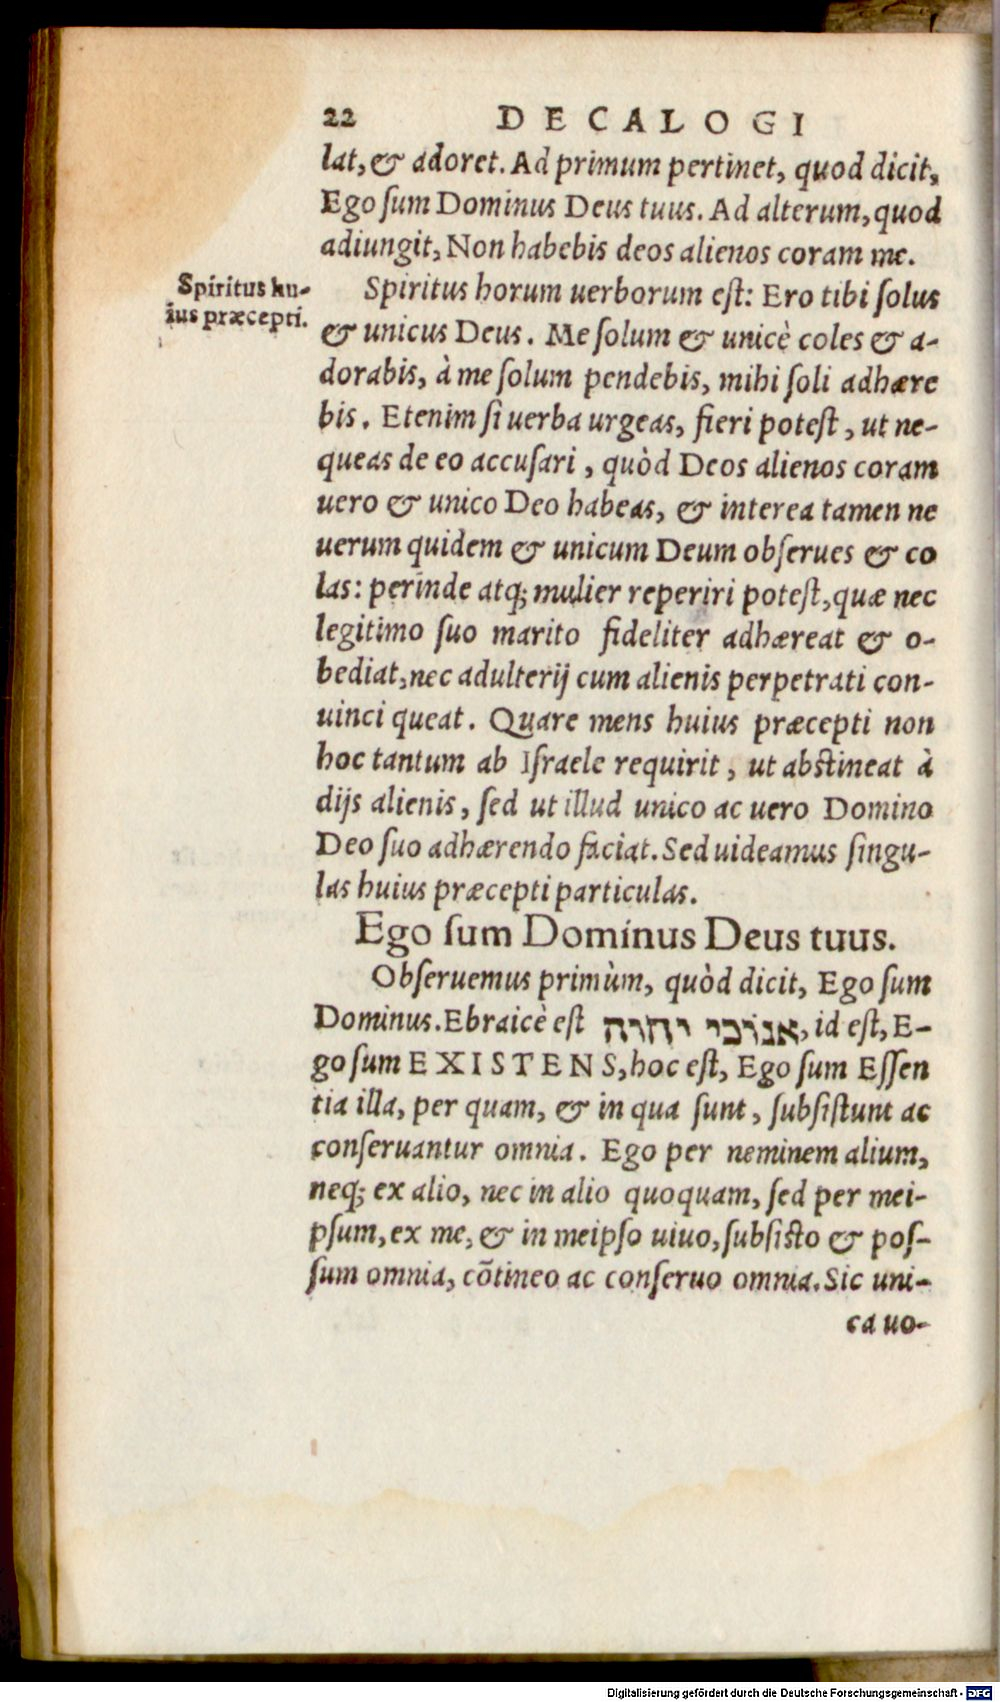 22 DECALOGI
lat, & adoret. Ad primum pertinet, quod dicit,
Ego ſum Dominus Deus tuus. Ad alterum, quod
adiungit, Non habebis deos alienos coram me.
Spiritus hu-
ius præcepti.
Spiritus horum uerborum eſt: Ero tibi ſolus
& unicus Deus. Me ſolum & unicè coles & a-
dorabis, à me ſolum pendebis, mihi ſoli adhære
bis. Etenim ſi uerba urgeas, fieri poteſt, ut ne-
queas de eo accuſari, quòd Deos alienos coram
uero & unico Deo habeas, & interea tamen ne
uerum quidem & unicum Deum obſerues & co
las: perinde atq; mulier reperiri poteſt, quæ nec
legitimo ſuo marito fideliter adhæreat & o-
bediat, nec adulterij cum alienis perpetrati con-
uinci queat. Quare mens huius præcepti non
hoc tantum ab Iſraele requirit, ut abstineat à
dijs alienis, ſed ut illud unico ac uero Domino
Deo ſuo adhærendo faciat. Sed uideamus ſingu-
las huius præcepti particulas.
Ego ſum Dominus Deus tuus.
Obſeruemus primùm, quòd dicit, Ego ſum
Dominus. Ebraicè eſt אנוֹכי יהוה, id eſt, E-
go ſum EXISTENS, hoc eſt, Ego ſum Eſſen
tia illa, per quam, & in qua ſunt, ſubſiſtunt ac
conſeruantur omnia. Ego per neminem alium,
neq; ex alio, nec in alio quoquam, ſed per mei-
pſum, ex me, & in meipſo uiuo, ſubſisto & poſ-
ſum omnia, cõtineo ac conſeruo omnia. Sic uni-
ca uo-
Digitalisierung gefördert durch die Deutsche Forschungsgemeinschaft - DFG